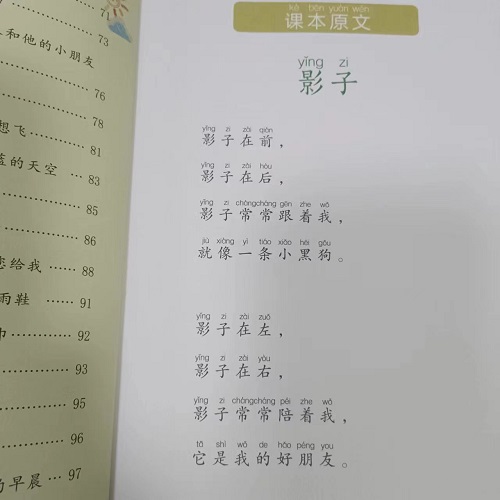 73
和他的小朋友
76
78
想飞 ………… 81
蓝的天空 …… 83
………… 85
………… 86
给我 …… 88
雨鞋 …… 91
………… 92
………… 93
………… 95
………… 96
早晨 …… 97
kè běn yuán wén
课本原文
yǐng zi
影子
yǐng zi zài qián
影子在前，
yǐng zi zài hòu
影子在后，
yǐng zi chángcháng gēn zhe wǒ
影子常常跟着我，
jiù xiàng yì tiáo xiǎo hēi gǒu
就像一条小黑狗。
yǐng zi zài zuǒ
影子在左，
yǐng zi zài yòu
影子在右，
yǐng zi chángcháng péi zhe wǒ
影子常常陪着我，
tā shì wǒ de hǎo péng you
它是我的好朋友。